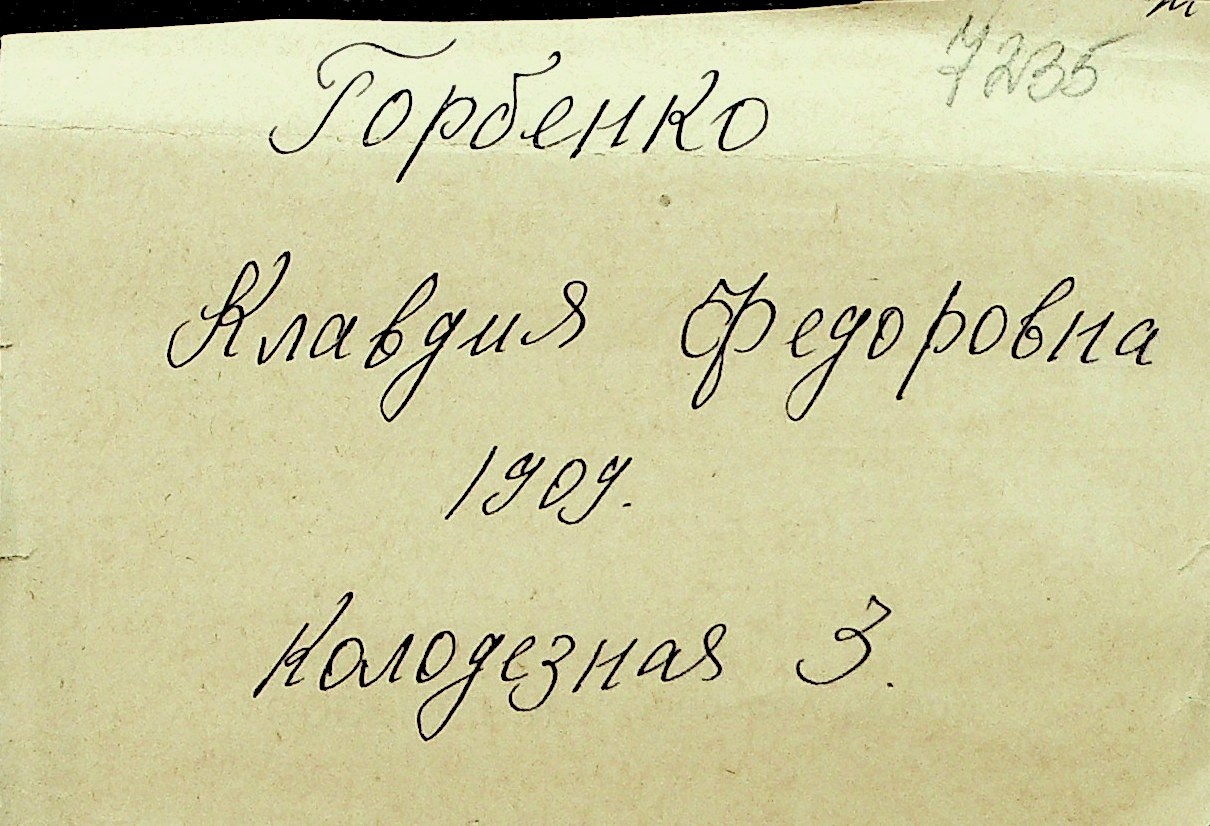 7235
Горбенко
Клавдия Федоровна
1909.
Колодезная 3.